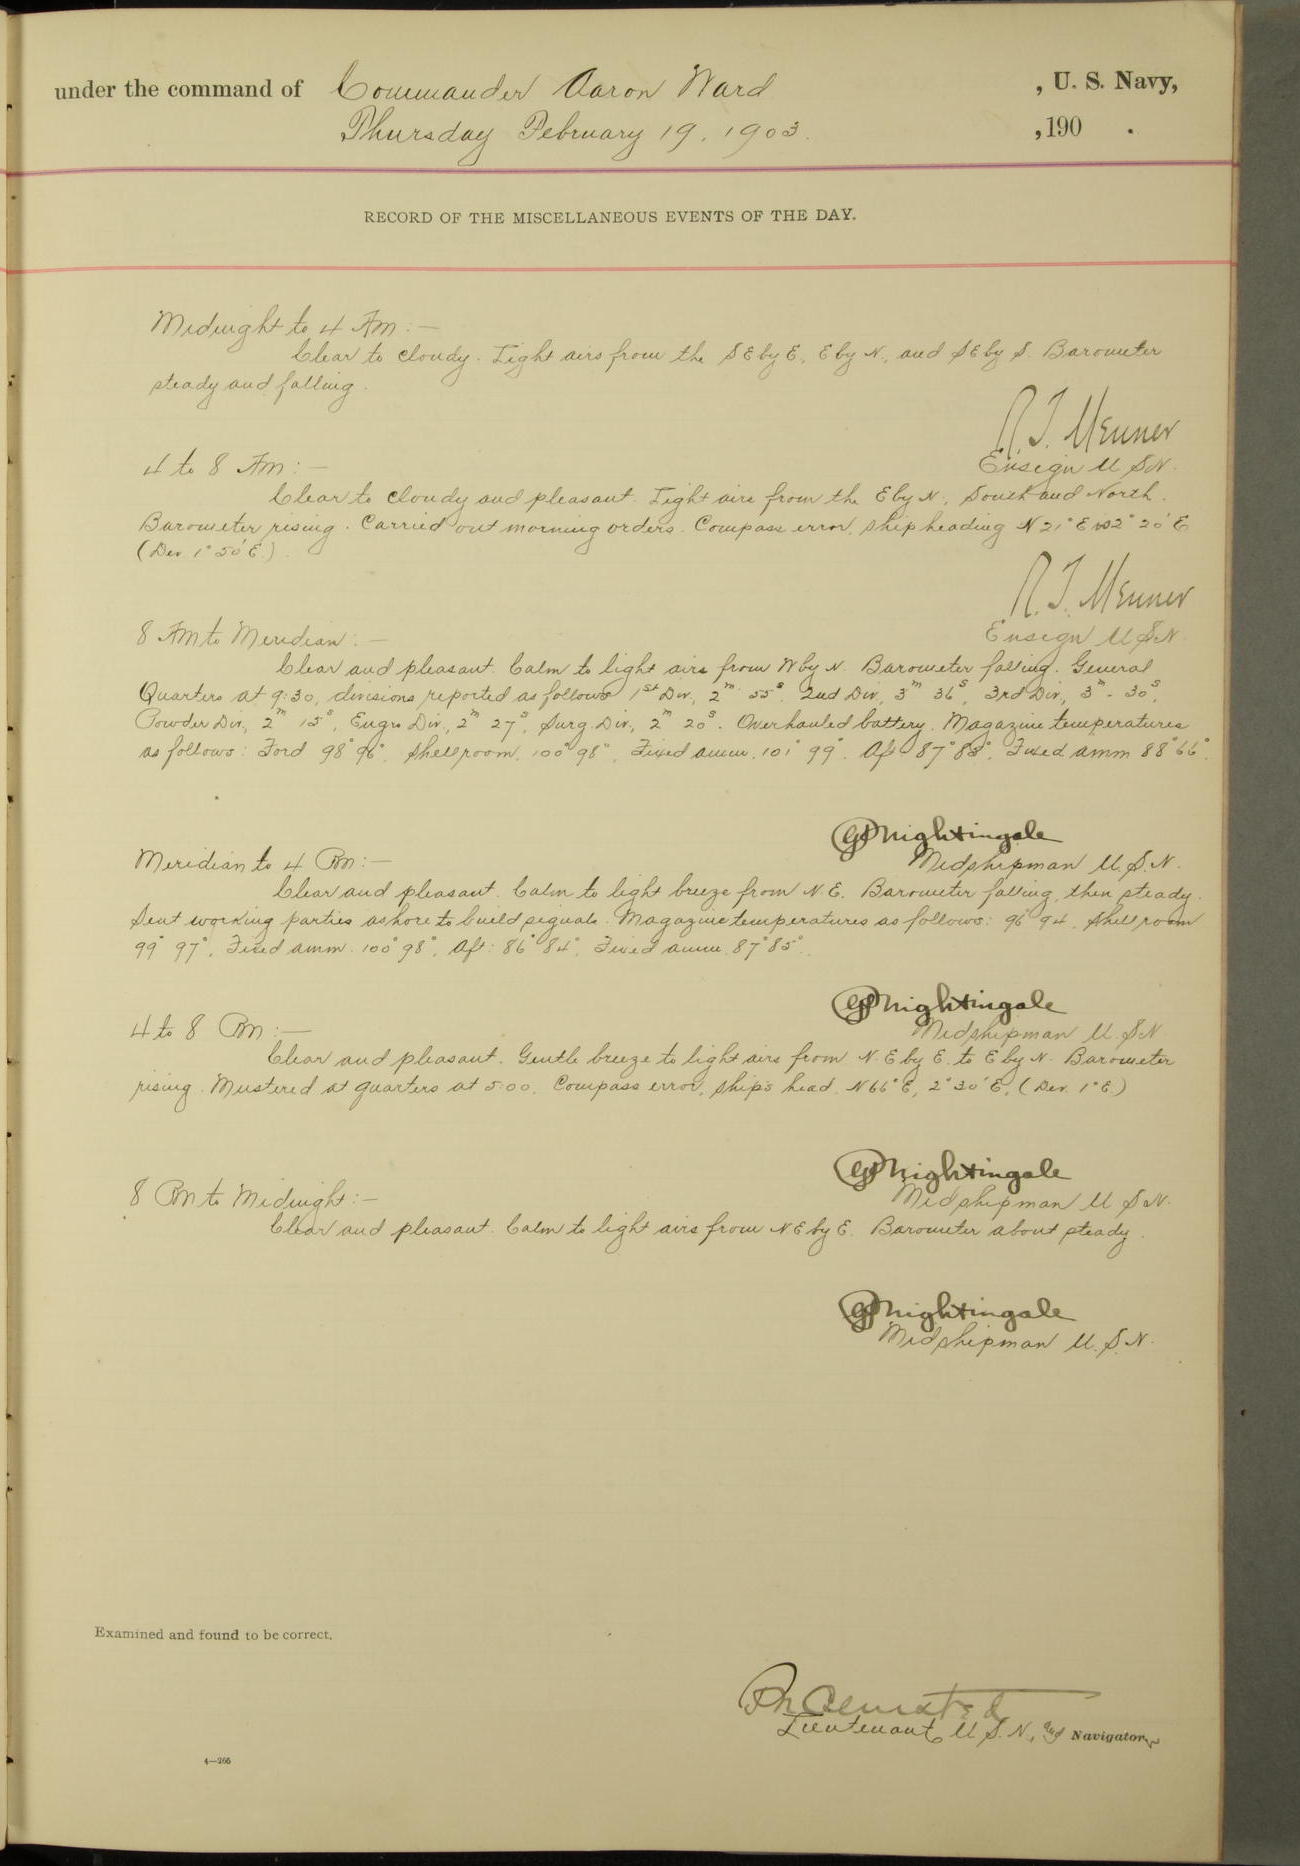 under the command of Commander Aaron Ward , U. S. Navy,
Thursday February 19, 1903. ,190 .
RECORD OF THE MISCELLANEOUS EVENTS OF THE DAY.
Midnight to 4 Am:—
Clear to cloudy. Light airs from the SE by E, E by N, and SE by S. Barometer
steady and falling.
R. T. Menner
Ensign U S N.
4 to 8 Am:—
Clear to cloudy and pleasant. Light airs from the E by N, South and North.
Barometer rising. Carried out morning orders. Compass error, ship heading N 21° E was 2° 20' E
(Dev. 1° 50' E.)
R. T. Menner
Ensign U S N.
8 Am to Meridian:—
Clear and pleasant. Calm to light airs from W by N. Barometer falling. General
Quarters at 9:30, divisions reported as follows 1st Div, 2m 55s. 2nd Div, 3m 36s, 3rd Div, 3m - 30s,
Powder Div, 2m 15s, Engrs Div, 2m 27s, Surg. Div, 2m 20s. Overhauled battery. Magazine temperatures
as follows: Ford 98° 96°, Shell room, 100° 98°, Fixed amm. 101° 99°. Aft 87° 85°, Fixed amm 88° 66°.
G Nightingale
Midshipman U.S.N.
Meridian to 4 Pm:—
Clear and pleasant. Calm to light breeze from N.E. Barometer falling, then steady.
Sent working parties ashore to build signals. Magazine temperatures as follows: 96° 94. Shell room
99° 97°, Fixed amm. 100° 98°, Aft: 86° 84°, Fixed amm. 87° 85°.
G Nightingale
Midshipman U. S N
4 to 8 Pm:—
Clear and pleasant. Gentle breeze to light airs from N. E by E. to E by N. Barometer
rising. Mustered at quarters at 5:00. Compass error, ship's head, N 66° E, 2° 30' E, (Dev. 1° E.)
G Nightingale
Midshipman U S N.
8 Pm to Midnight:—
Clear and pleasant. Calm to light airs from N.E by E. Barometer about steady.
G Nightingale
Midshipman U. S. N.
Examined and found to be correct.
Lieutenant U. S. N., and Navigator
4—266